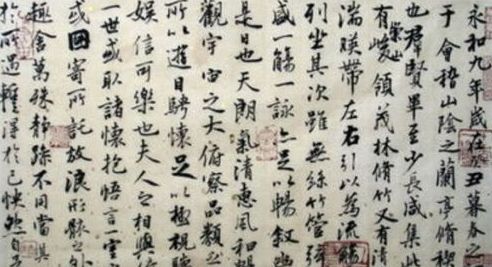 永和九年歲在癸丑暮春之
于會稽山陰之蘭亭脩禊
也群賢畢至少長咸集此
有崇山峻領茂林脩竹又有清
湍暎帶左右引以為流觴
列坐其次雖無絲竹管絃
盛一觴一詠亦足以暢敘
是日也天朗氣清惠風和暢
觀宇宙之大俯察品類之
所以遊目騁懷足以極視聽
娛信可樂也夫人之相與
一世或取諸懷抱悟言一室
或因寄所託放浪形骸之外
趣舍萬殊静躁不同當其
於所遇輒得於己怏然自足